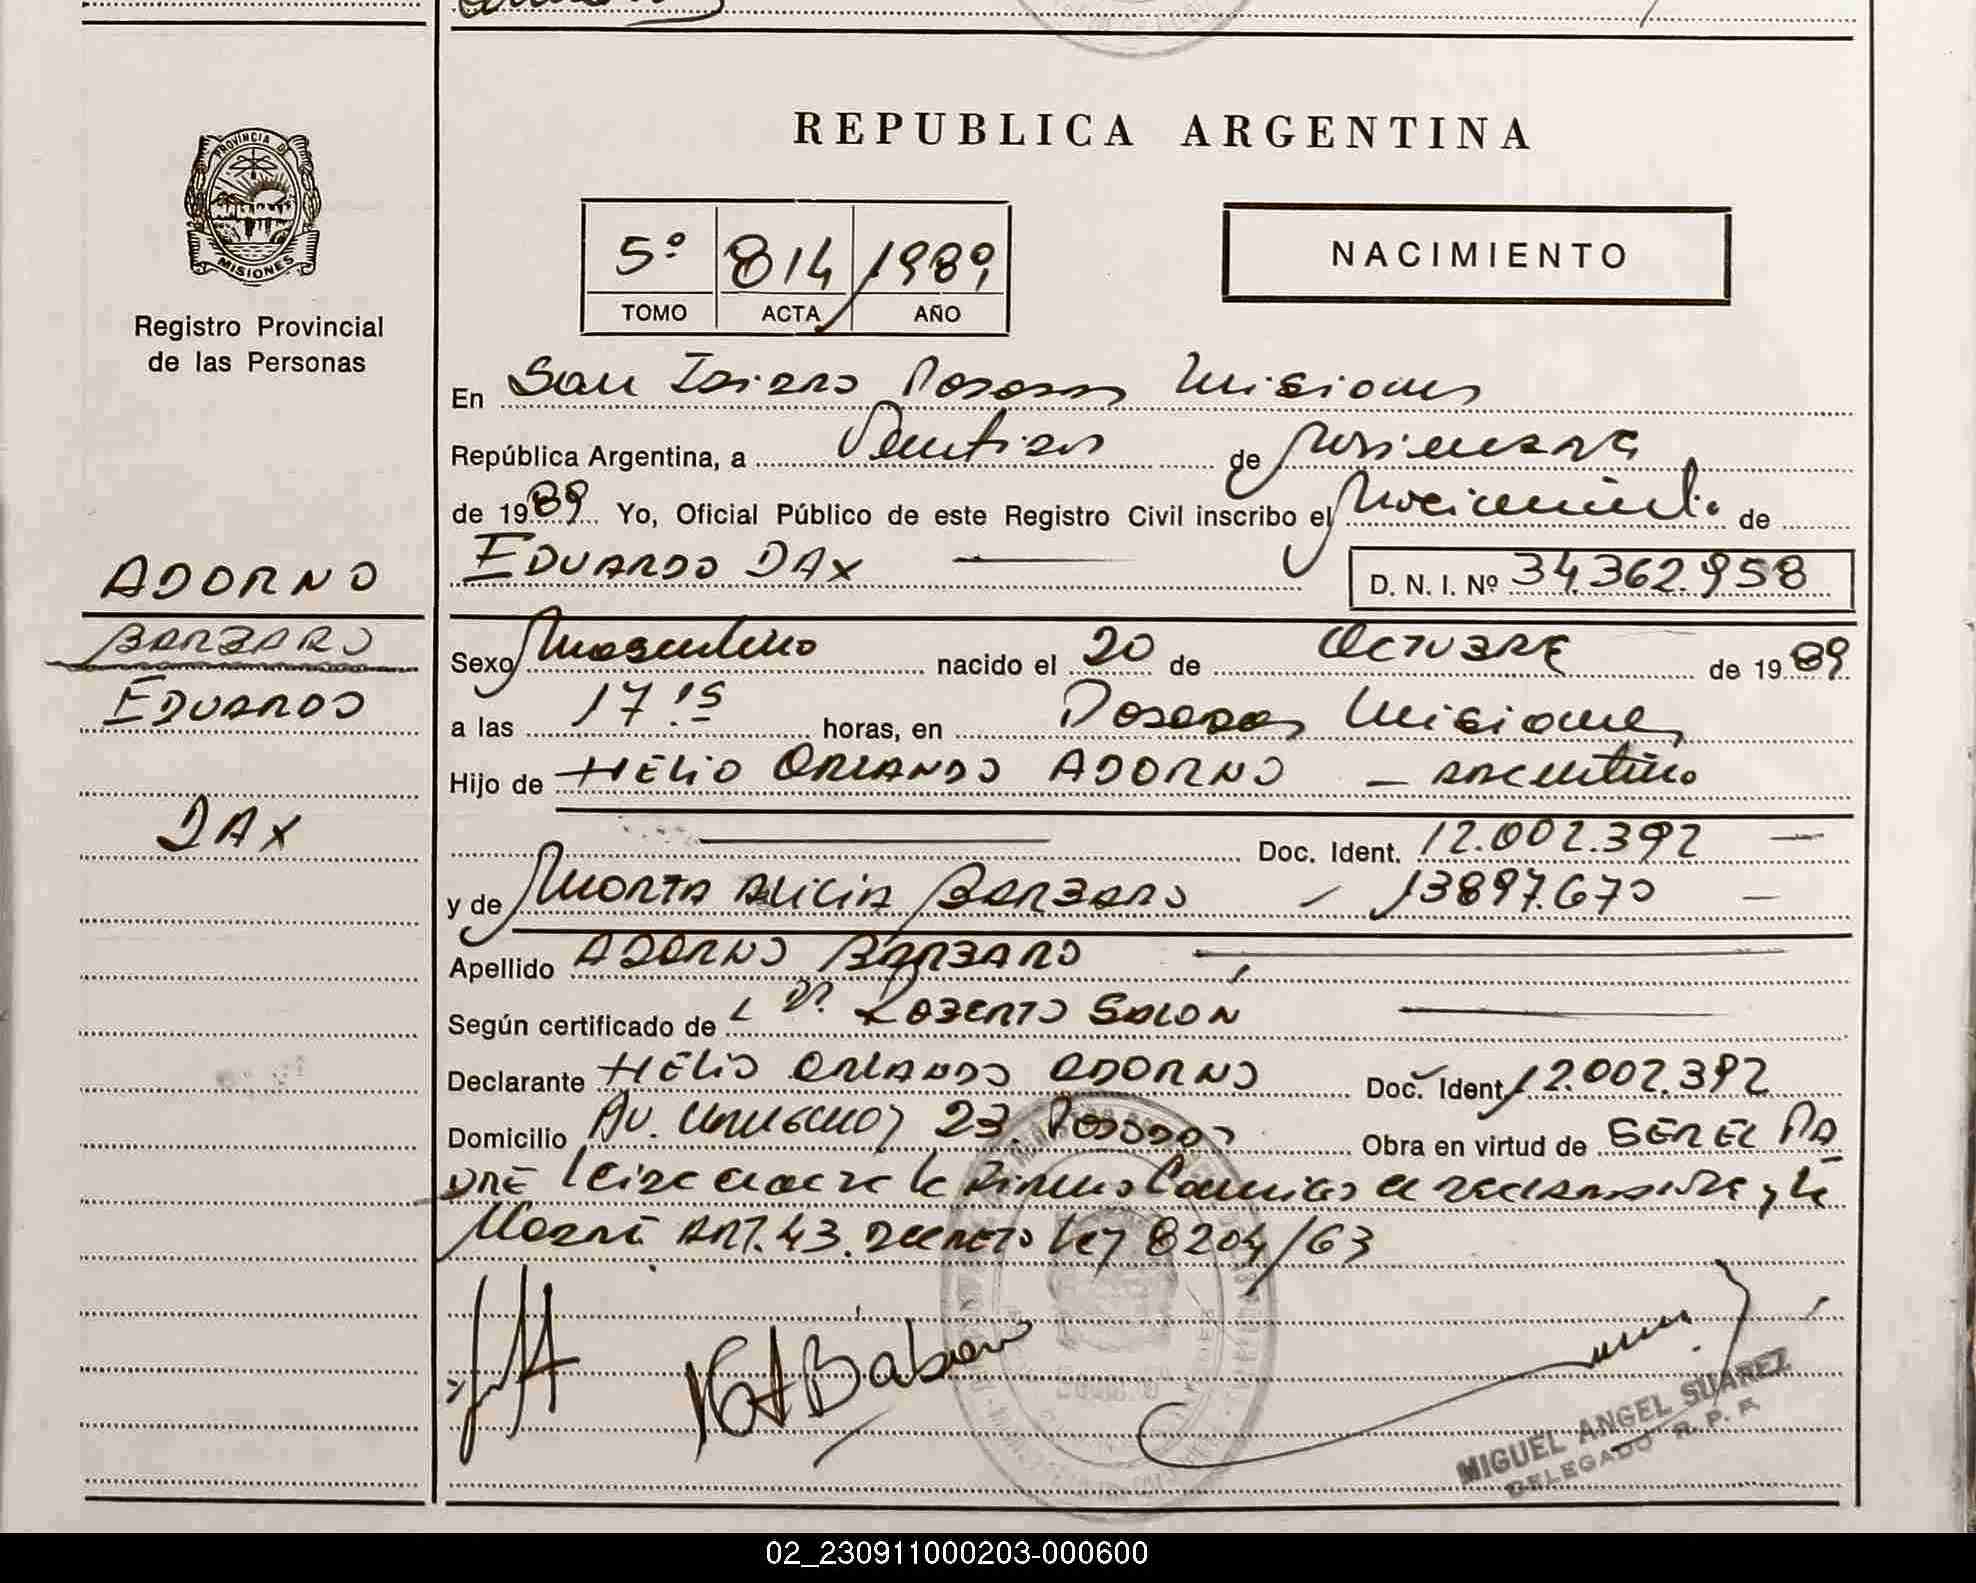 REPUBLICA ARGENTINA
PROVINCIA DE
MISIONES
Registro Provincial
de las Personas
5º 814 1989
TOMO ACTA AÑO
NACIMIENTO
En San Isidro Posadas Misiones
República Argentina, a Veintidos de Noviembre
de 1989 Yo, Oficial Público de este Registro Civil inscribo el Nacimiento de
EDUARDO DAX D. N. I. Nº 34.362.958
ADORNO
BARBARO
EDUARDO
DAX
Sexo Masculino nacido el 20 de OCTUBRE de 1989
a las 17.15 horas, en Posadas Misiones
Hijo de HELIO ORLANDO ADORNO - argentino
Doc. Ident. 12.002.392
y de MARTA ALICIA BARBARO - 13897.670
Apellido ADORNO BARBARO
Según certificado de Dr. ROBERTO SOLON
Declarante HELIO ORLANDO ADORNO Doc. Ident. 12.002.392
Domicilio AV. 23. Posadas Obra en virtud de SER EL PA
DRE el declarante y la
Madre ART. 43. DECRETO Ley 8204/63
MIGUEL ANGEL SUAREZ
DELEGADO R. P. P.
02_230911000203-000600